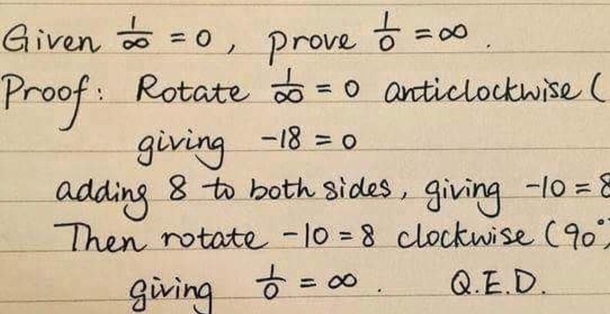 Given 1/∞ = 0, prove 1/0 = ∞.
Proof: Rotate 1/∞ = 0 anticlockwise (
giving -18 = 0
adding 8 to both sides, giving -10 = 8
Then rotate -10 = 8 clockwise (90°)
giving 1/0 = ∞. Q.E.D.